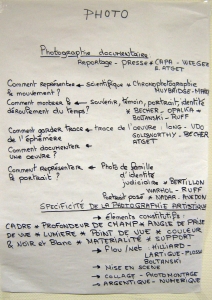 PHOTO
Photographie documentaire
Reportage - presse * CAPA - WEEGEE
E. ATGET
Comment représenter * scientifique * Chronophotographie
le mouvement? MUYBRIDGE - MAREY
Comment montrer le * Souvenir, témoin, portrait, identité
déroulement du temps? * BECHER - OPALKA
BOLTANSKI - RUFF
Comment garder trace * trace de l'oeuvre : LONG - UDO
de l'éphémère GOLDSWORTHY - BECHER
Comment documenter ATGET
une oeuvre?
Comment représenter * Photo de famille
le portrait? d'identité
judiciaire * BERTILLON
WARHOL - RUFF
Portrait posé * NADAR. AVEDON
SPECIFICITÉ DE LA PHOTOGRAPHIE ARTISTIQUE
→ éléments constitutifs :
CADRE * PROFONDEUR DE CHAMP * ANGLE DE PRISE
DE VUE * LUMIERE * POINT DE VUE * COULEUR
& NOIR et Blanc * MATERIALITÉ * SUPPORT
→ Flou / Net : HILLIARD -
LARTIGUE -
BOLTANSKI
→ MISE EN SCENE
→ COLLAGE - PHOTOMONTAGE
→ ARGENTIQUE - NUMERIQUE